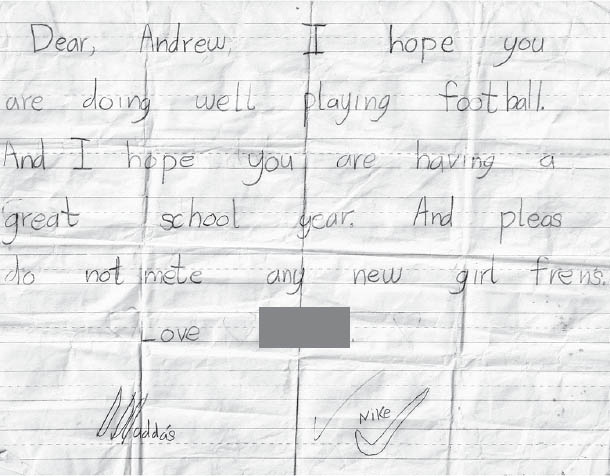 Dear, Andrew, I hope you
are doing well playing football.
And I hope you are having a
great school year. And pleas
do not mete any new girl frens.
Love
addas
Nike